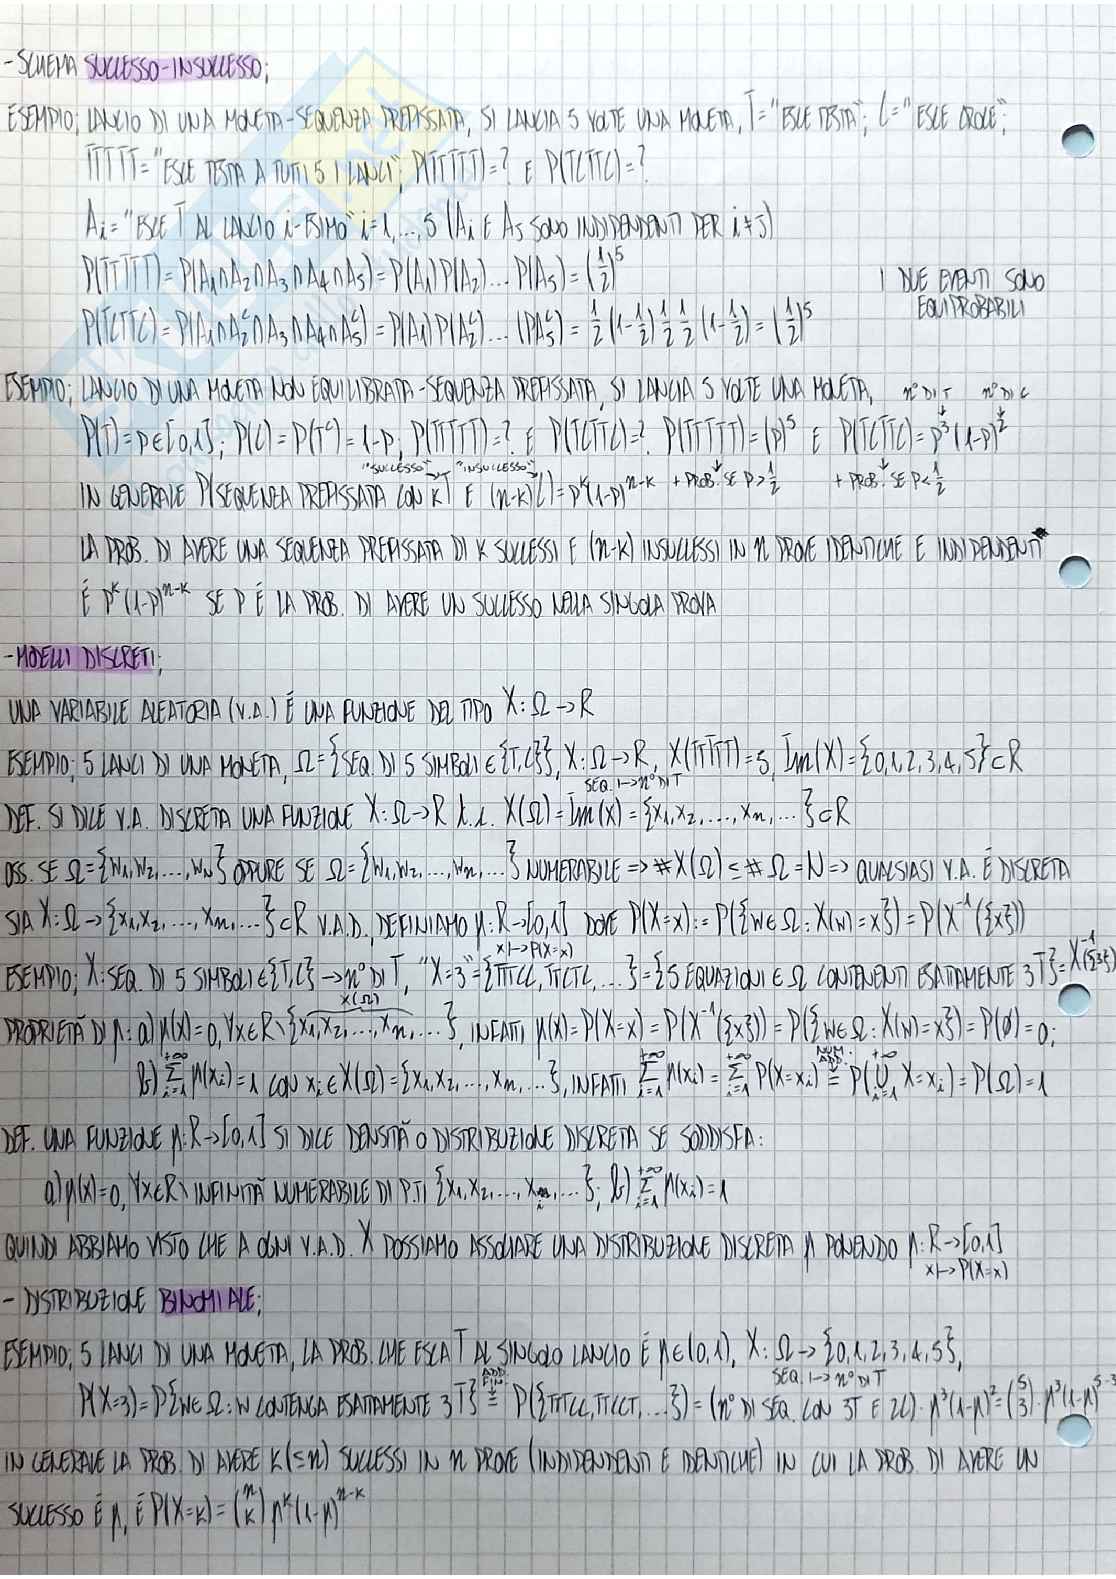 - SCHEMA SUCCESSO-INSUCCESSO;
ESEMPIO; LANCIO DI UNA MONETA-SEQUENZA PREFISSATA, SI LANCIA 5 VOLTE UNA MONETA, T="ESCE TESTA"; C="ESCE CROCE";
TTTTT="ESCE TESTA A TUTTI 5 I LANCI"; P(TTTTT)=? E P(TCTTC)=?
Ai="ESCE T AL LANCIO i-ESIMO" i=1,...,5 (Ai E AJ SONO INDIPENDENTI PER i≠J)
P(TTTTT)=P(A1∩A2∩A3∩A4∩A5)=P(A1)P(A2)...P(A5)=(1/2)^5
I DUE EVENTI SONO EQUIPROBABILI
P(TCTTC)=P(A1∩A2^C∩A3∩A4∩A5^C)=P(A1)P(A2^C)...(PA5^C)=1/2(1-1/2)1/2 1/2(1-1/2)=(1/2)^5
ESEMPIO; LANCIO DI UNA MONETA NON EQUILIBRATA-SEQUENZA PREFISSATA, SI LANCIA 5 VOLTE UNA MONETA, n° DI T n° DI C
P(T)=p∈[0,1]; P(C)=P(T^C)=1-p; P(TTTTT)=? E P(TCTTC)=? P(TTTTT)=(p)^5 E P(TCTTC)=p^3(1-p)^2
"SUCCESSO" "INSUCCESSO"
IN GENERALE P(SEQUENZA PREFISSATA CON K T E (n-k)C)=p^k(1-p)^n-k +PROB. SE P>1/2 +PROB. SE P<1/2
LA PROB. DI AVERE UNA SEQUENZA PREFISSATA DI K SUCCESSI E (n-k) INSUCCESSI IN n PROVE IDENTICHE E INDIPENDENTI
É p^k(1-p)^n-k SE P É LA PROB. DI AVERE UN SUCCESSO NELLA SINGOLA PROVA
- MODELLI DISCRETI;
UNA VARIABILE ALEATORIA (V.A.) É UNA FUNZIONE DEL TIPO X:Ω→R
ESEMPIO; 5 LANCI DI UNA MONETA, Ω={SEQ. DI 5 SIMBOLI ∈{T,C}}, X:Ω→R, X(TTTTT)=5, Im(X)={0,1,2,3,4,5}⊂R
SEQ. ↦ n° DI T
DEF. SI DICE V.A. DISCRETA UNA FUNZIONE X:Ω→R t.c. X(Ω)=Im(X)={x1,x2,...,xn,...}⊂R
OSS. SE Ω={w1,w2,...,wN} OPPURE SE Ω={w1,w2,...,wn,...} NUMERABILE => #X(Ω)≤#Ω=N => QUALSIASI V.A. É DISCRETA
SIA X:Ω→{x1,x2,...,xn,...}⊂R V.A.D., DEFINIAMO p:R→[0,1] DOVE P(X=x):=P({w∈Ω:X(w)=x})=P(X^-1({x}))
x↦P(X=x)
ESEMPIO; X:SEQ. DI 5 SIMBOLI∈{T,C}→n° DI T, "X=3"={TTTCC,TTCTC,...}={5 EQUAZIONI ∈ Ω CONTENENTI ESATTAMENTE 3T}=X^-1({3})
X(Ω)
PROPRIETÀ DI p: a) p(x)=0, ∀x∈R\{x1,x2,...,xn,...}, INFATTI p(x)=P(X=x)=P(X^-1({x}))=P({w∈Ω:X(w)=x})=P(∅)=0;
b) Σ_{i=1}^{+∞} p(xi)=1 CON xi∈X(Ω)={x1,x2,...,xn,...}, INFATTI Σ_{i=1}^{+∞} p(xi)=Σ_{i=1}^{+∞} P(X=xi) NUM. ADD. = P(∪_{i=1}^{+∞} X=xi)=P(Ω)=1
DEF. UNA FUNZIONE p:R→[0,1] SI DICE DENSITÀ O DISTRIBUZIONE DISCRETA SE SODDISFA:
a) p(x)=0, ∀x∈R\ INFINITÀ NUMERABILE DI P.TI {x1,x2,...,xi,...}; b) Σ_{i=1}^{+∞} p(xi)=1
QUINDI ABBIAMO VISTO CHE A OGNI V.A.D. X POSSIAMO ASSOCIARE UNA DISTRIBUZIONE DISCRETA p PONENDO p:R→[0,1]
x↦P(X=x)
- DISTRIBUZIONE BINOMIALE;
ESEMPIO; 5 LANCI DI UNA MONETA, LA PROB. CHE ESCA T AL SINGOLO LANCIO É p∈(0,1), X:Ω→{0,1,2,3,4,5},
SEQ. ↦ n° DI T
P(X=3)=P{w∈Ω:w CONTENGA ESATTAMENTE 3T} ADD. FIN. = P({TTTCC,TTCCT,...})=(n° DI SEQ. CON 3T E 2C)·p^3(1-p)^2=(5 3)·p^3(1-p)^5-3
IN GENERALE LA PROB. DI AVERE K(≤n) SUCCESSI IN n PROVE (INDIPENDENTI E IDENTICHE) IN CUI LA PROB. DI AVERE UN
SUCCESSO É p, É P(X=k)=(n k)p^k(1-p)^n-k